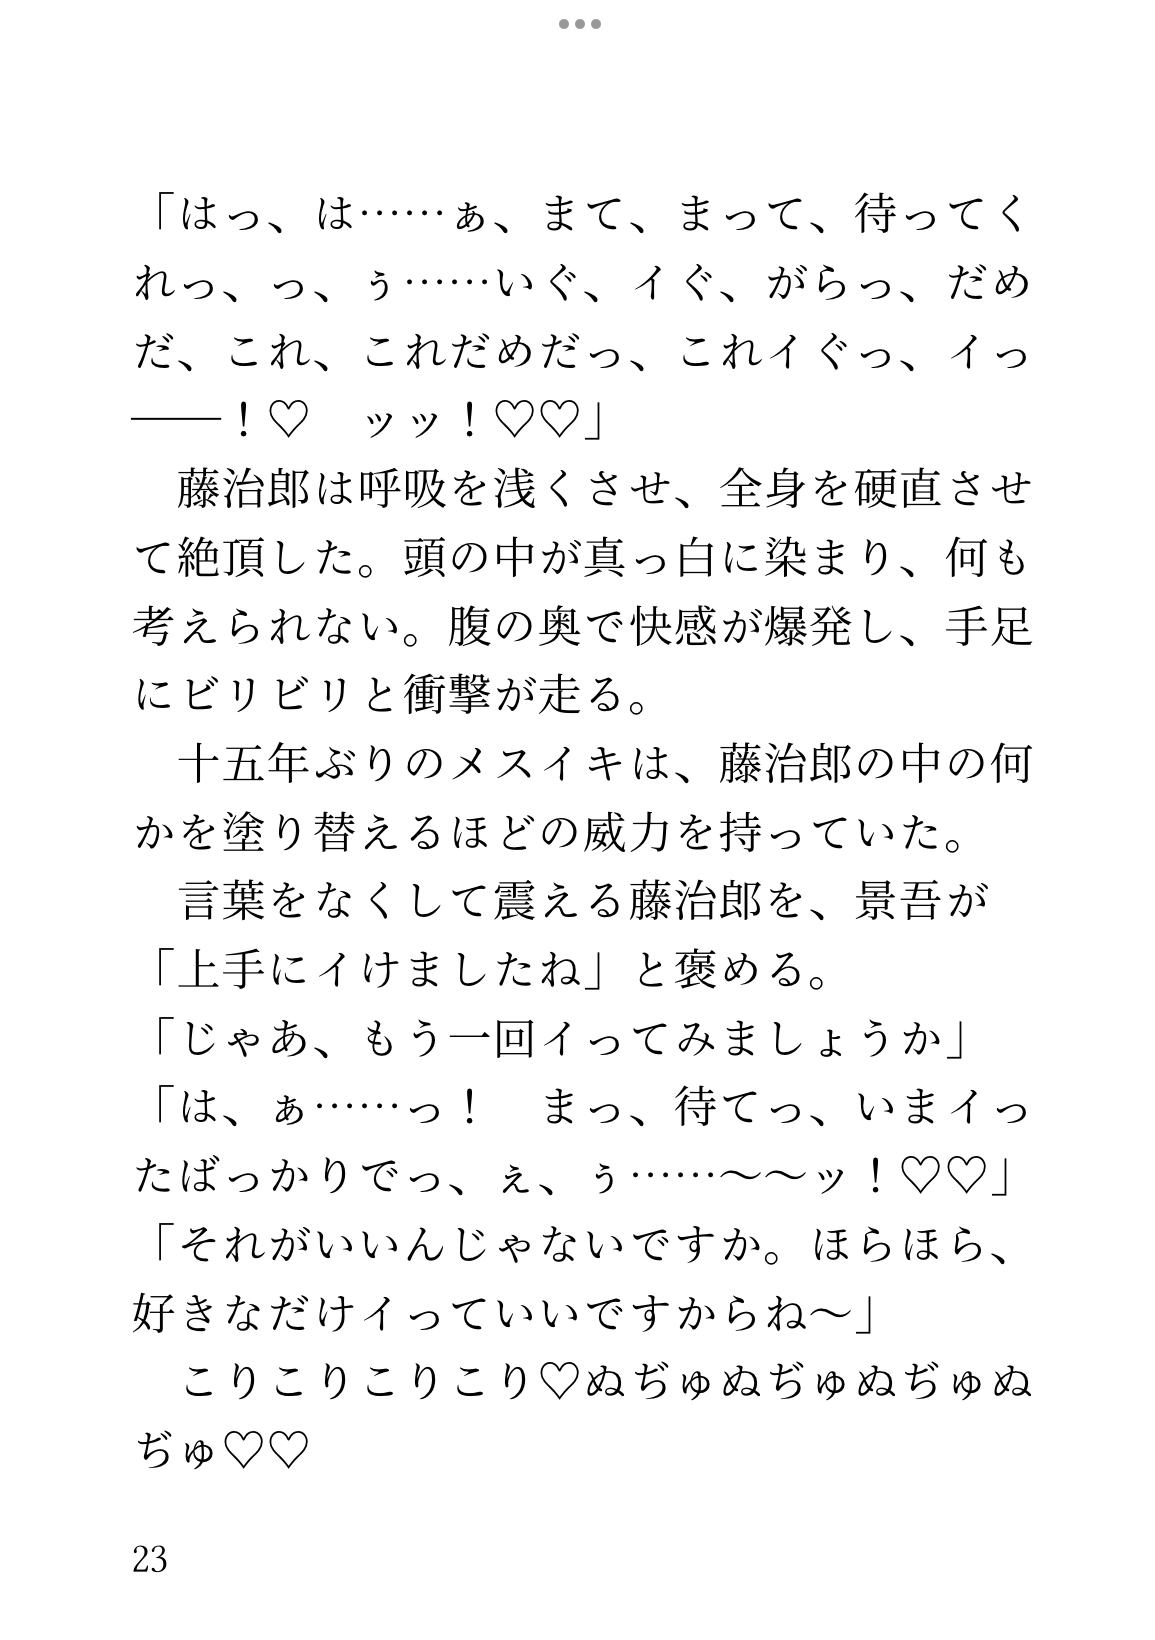 「はっ、は……ぁ、まて、まって、待ってく
れっ、っ、ぅ……いぐ、イぐ、がらっ、だめ
だ、これ、これだめだっ、これイぐっ、イっ
――！♡　ッッ！♡♡」
　藤治郎は呼吸を浅くさせ、全身を硬直させ
て絶頂した。頭の中が真っ白に染まり、何も
考えられない。腹の奥で快感が爆発し、手足
にビリビリと衝撃が走る。
　十五年ぶりのメスイキは、藤治郎の中の何
かを塗り替えるほどの威力を持っていた。
　言葉をなくして震える藤治郎を、景吾が
「上手にイけましたね」と褒める。
「じゃあ、もう一回イってみましょうか」
「は、ぁ……っ！　まっ、待てっ、いまイっ
たばっかりでっ、ぇ、ぅ……～～ッ！♡♡」
「それがいいんじゃないですか。ほらほら、
好きなだけイっていいですからね～」
　こりこりこりこり♡ぬぢゅぬぢゅぬぢゅぬ
ぢゅ♡♡
23